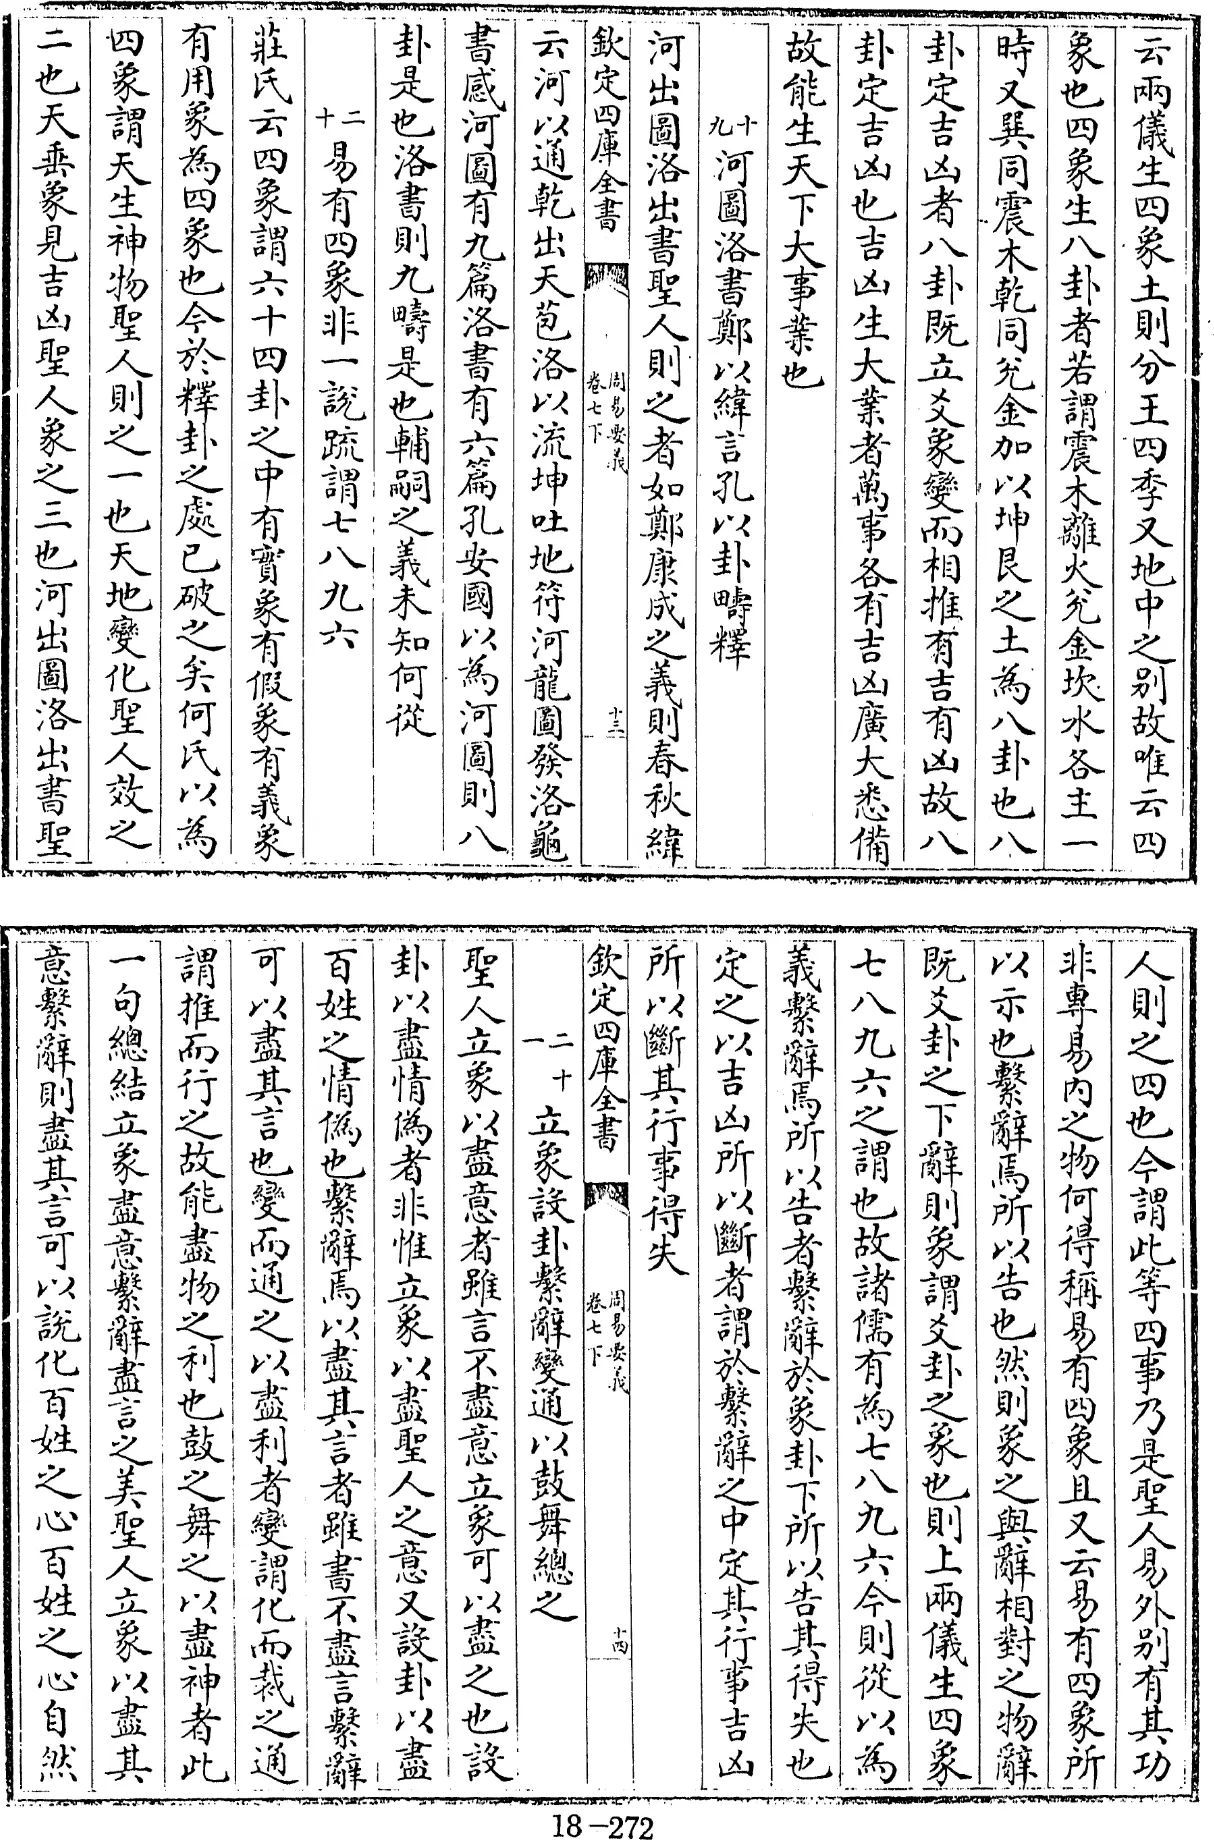 云兩儀生四象土則分王四季又地中之别故唯云四
象也四象生八卦者若謂震木離火兊金坎水各主一
時又巽同震木乾同兊金加以坤艮之土為八卦也八
卦定吉凶者八卦既立爻象變而相推有吉有凶故八
卦定吉凶也吉凶生大業者萬事各有吉凶廣大悉備
故能生天下大事業也
十九河圖洛書鄭以緯言孔以卦疇釋
河出圖洛出書聖人則之者如鄭康成之義則春秋緯
欽定四庫全書
周易要義
卷七下
十三
云河以通乾出天苞洛以流坤吐地符河龍圖發洛龜
書感河圖有九篇洛書有六篇孔安國以為河圖則八
卦是也洛書則九疇是也輔嗣之義未知何從
二十易有四象非一説疏謂七八九六
莊氏云四象謂六十四卦之中有實象有假象有義象
有用象為四象也今於釋卦之處已破之矣何氏以為
四象謂天生神物聖人則之一也天地變化聖人效之
二也天垂象見吉凶聖人象之三也河出圖洛出書聖
人則之四也今謂此等四事乃是聖人易外别有其功
非專易内之物何得稱易有四象且又云易有四象所
以示也繫辭焉所以告也然則象之與辭相對之物辭
既爻卦之下辭則象謂爻卦之象也則上兩儀生四象
七八九六之謂也故諸儒有為七八九六今則從以為
義繫辭焉所以告者繫辭於象卦下所以告其得失也
定之以吉凶所以斷者謂於繫辭之中定其行事吉凶
所以斷其行事得失
欽定四庫全書
周易要義
卷七下
十四
二十一立象設卦繫辭變通以鼓舞總之
聖人立象以盡意者雖言不盡意立象可以盡之也設
卦以盡情偽者非惟立象以盡聖人之意又設卦以盡
百姓之情偽也繫辭焉以盡其言者雖書不盡言繫辭
可以盡其言也變而通之以盡利者變謂化而裁之通
謂推而行之故能盡物之利也鼓之舞之以盡神者此
一句總結立象盡意繫辭盡言之美聖人立象以盡其
意繫辭則盡其言可以説化百姓之心百姓之心自然
18-272